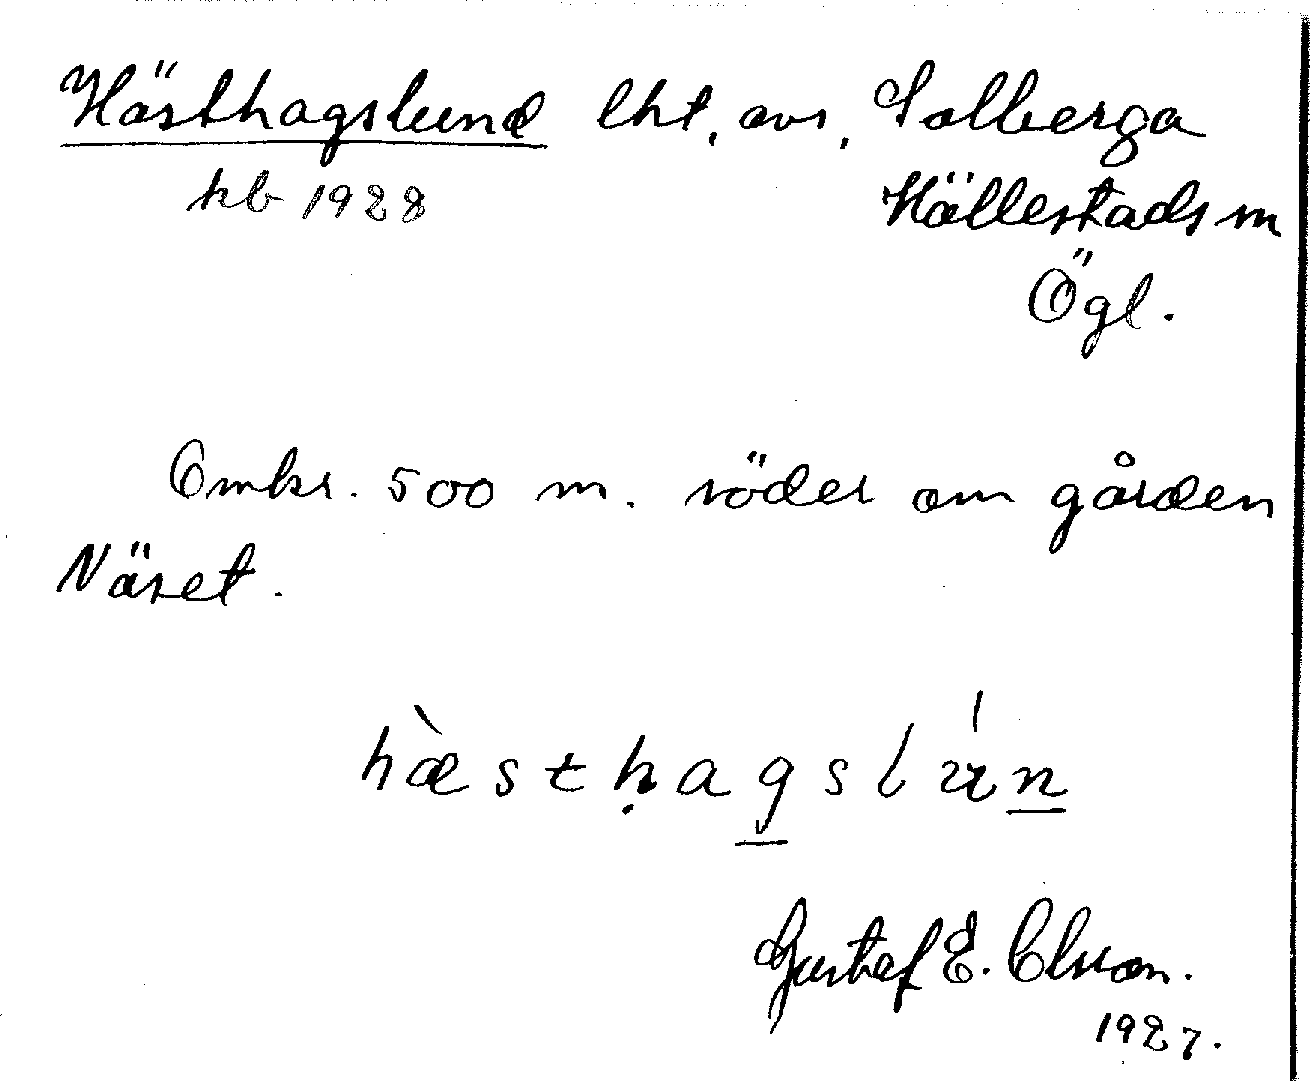 Hästhagslund lht. avs. Solberga
kb 1928
Hällestads sn
Ögl.
Omkr. 500 m. söder om gården
Näset.
hæ̀sthagslún
Gustaf E. Olsson.
1927.